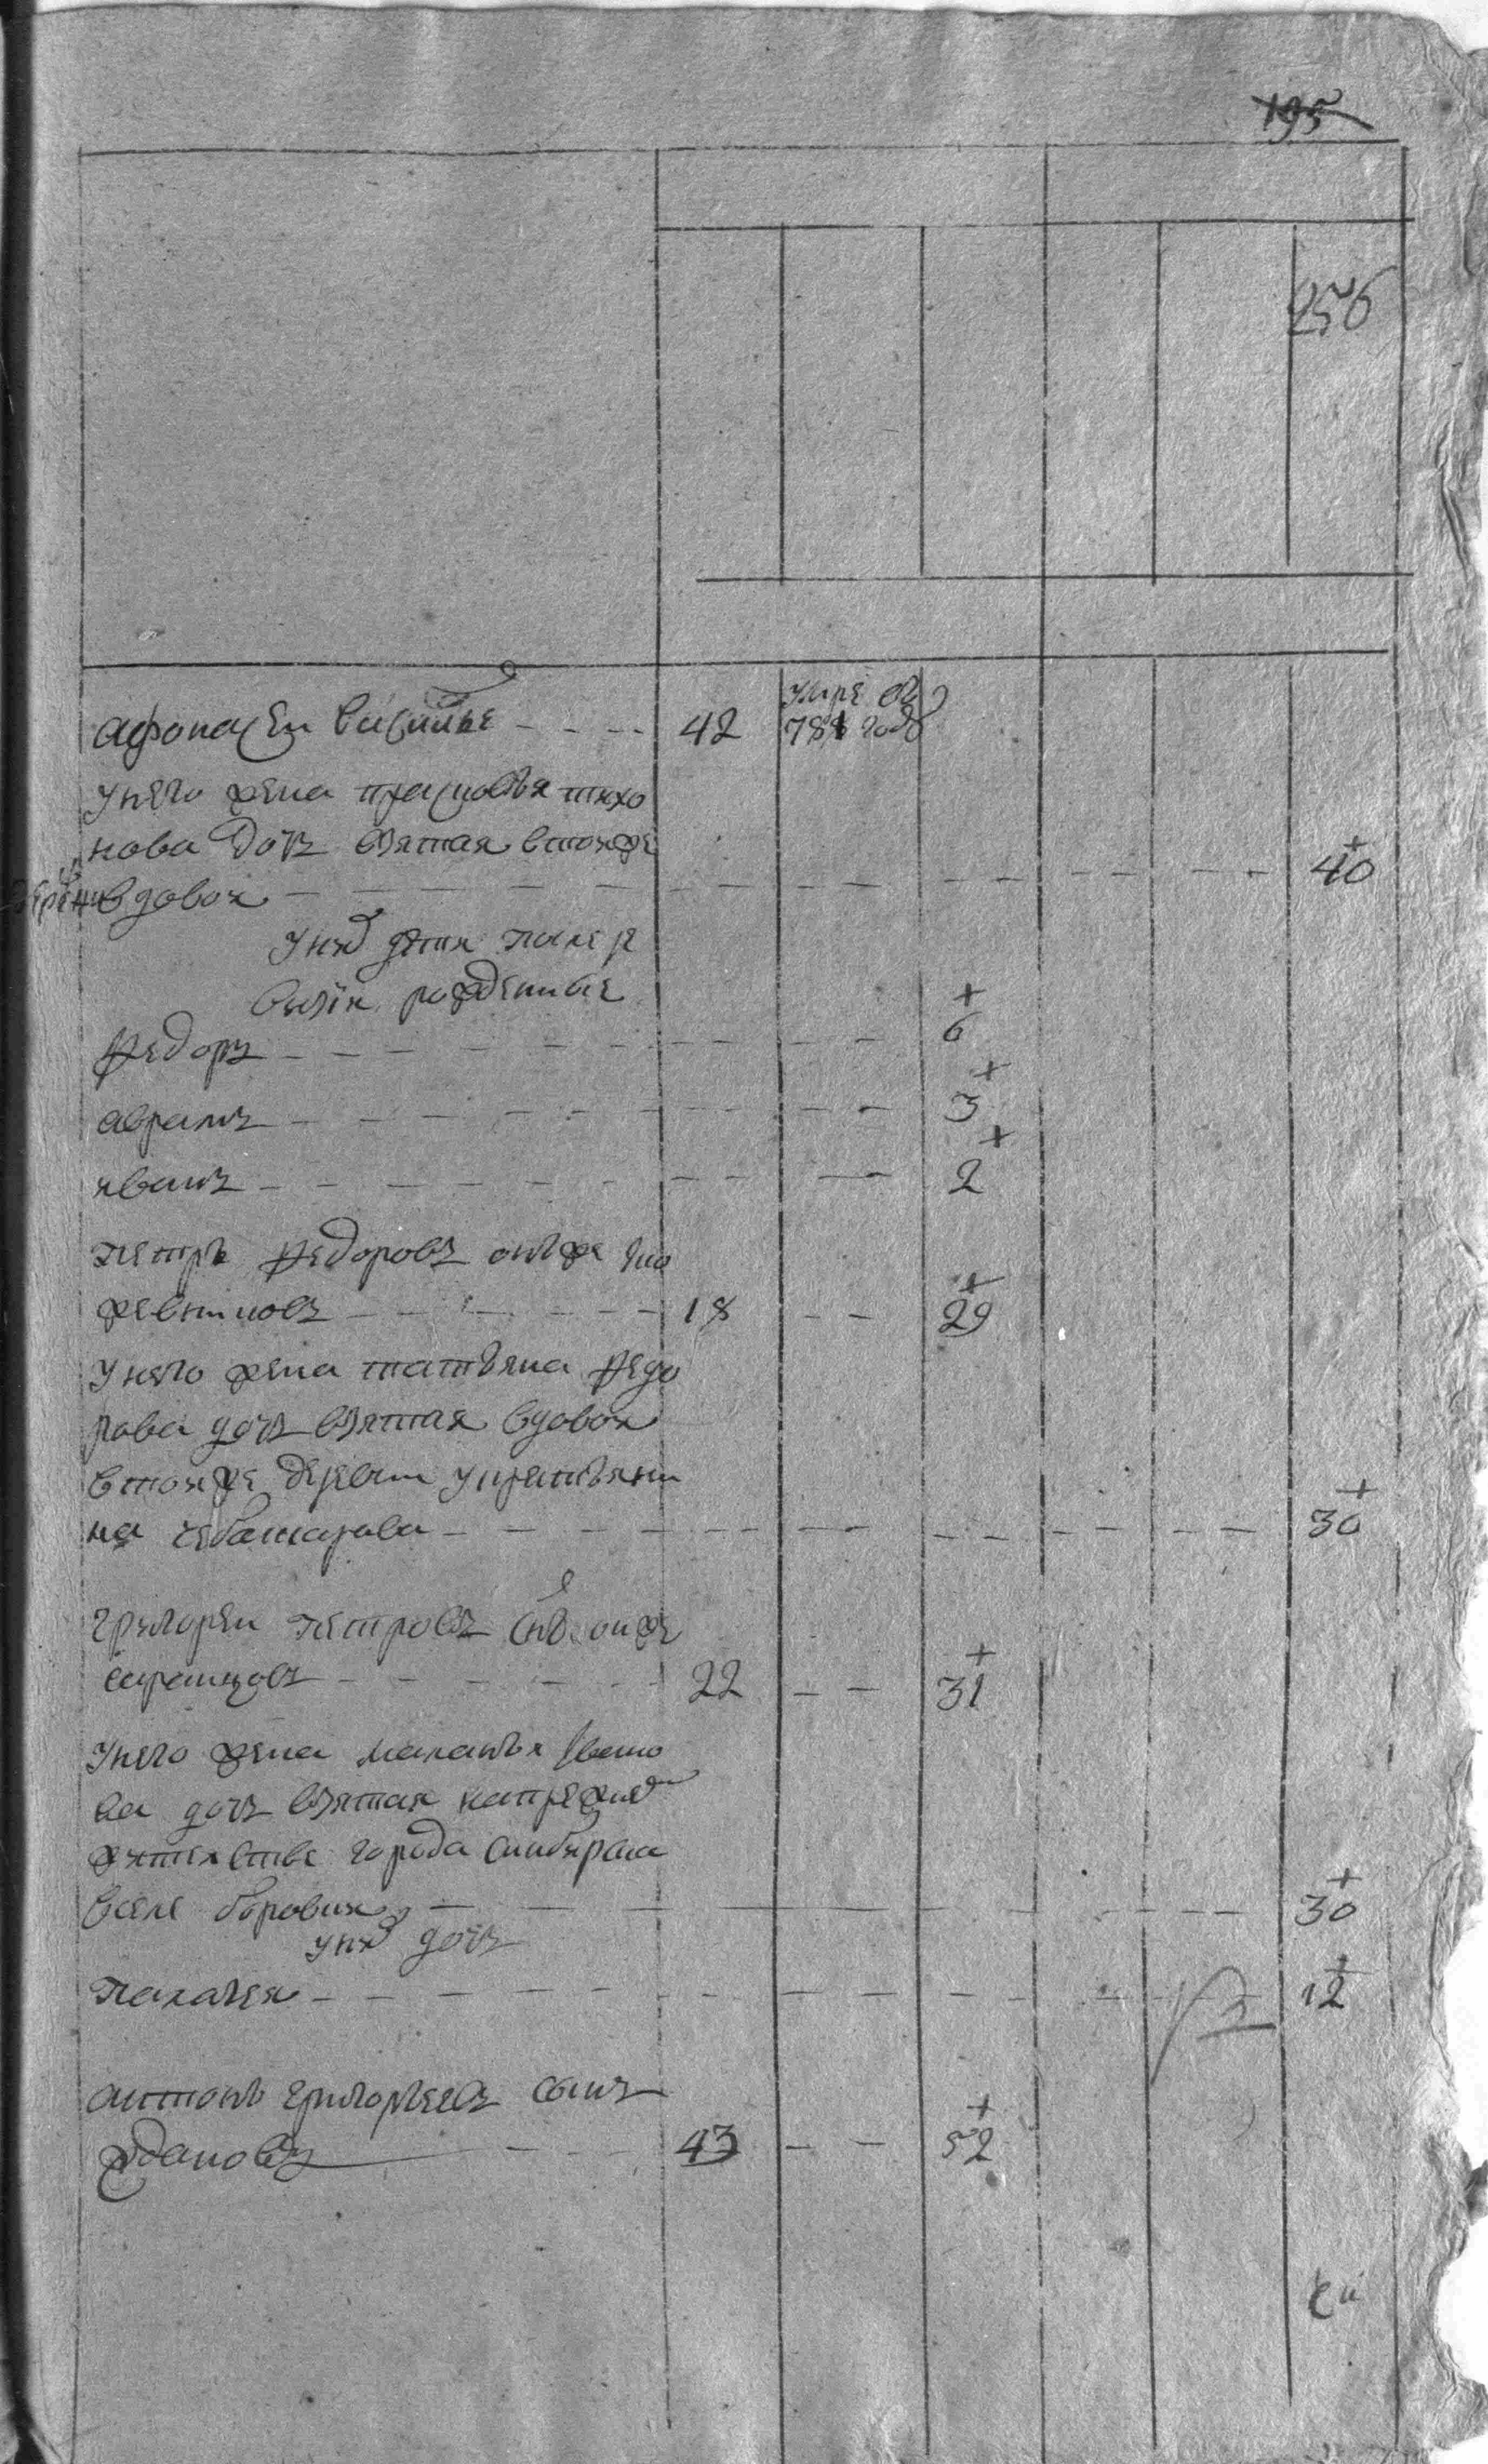 195
256
умре въ
Афонасеи васильев - - - - 42 781 году
у него жена прасковья тихо
нова дочь взятая в тои же
деревни вдовои - - - - 40
у них дети после ре
визии рожденные
Федоръ - - - - 6
аврамъ - - - - 3
иванъ - - - - 2
петръ Федоровъ онъ же
жевтиновъ - - - - 18 - - 29
у него жена татьяна Федо
рова дочь взятая вдовои
в тои же деревни у крестьяни
на чебатарова - - - - 30
григореи петровъ снъ он же
саранцовъ - - - - 22 - - 31
у него жена маланья
ва дочь взятая напрежнем
жительстве города синбирска
в селе боровки - - - - 30
у них дочь
палагея - - - - 12
антонъ григорьевъ сынъ
ждановъ - - - 43 - - 52